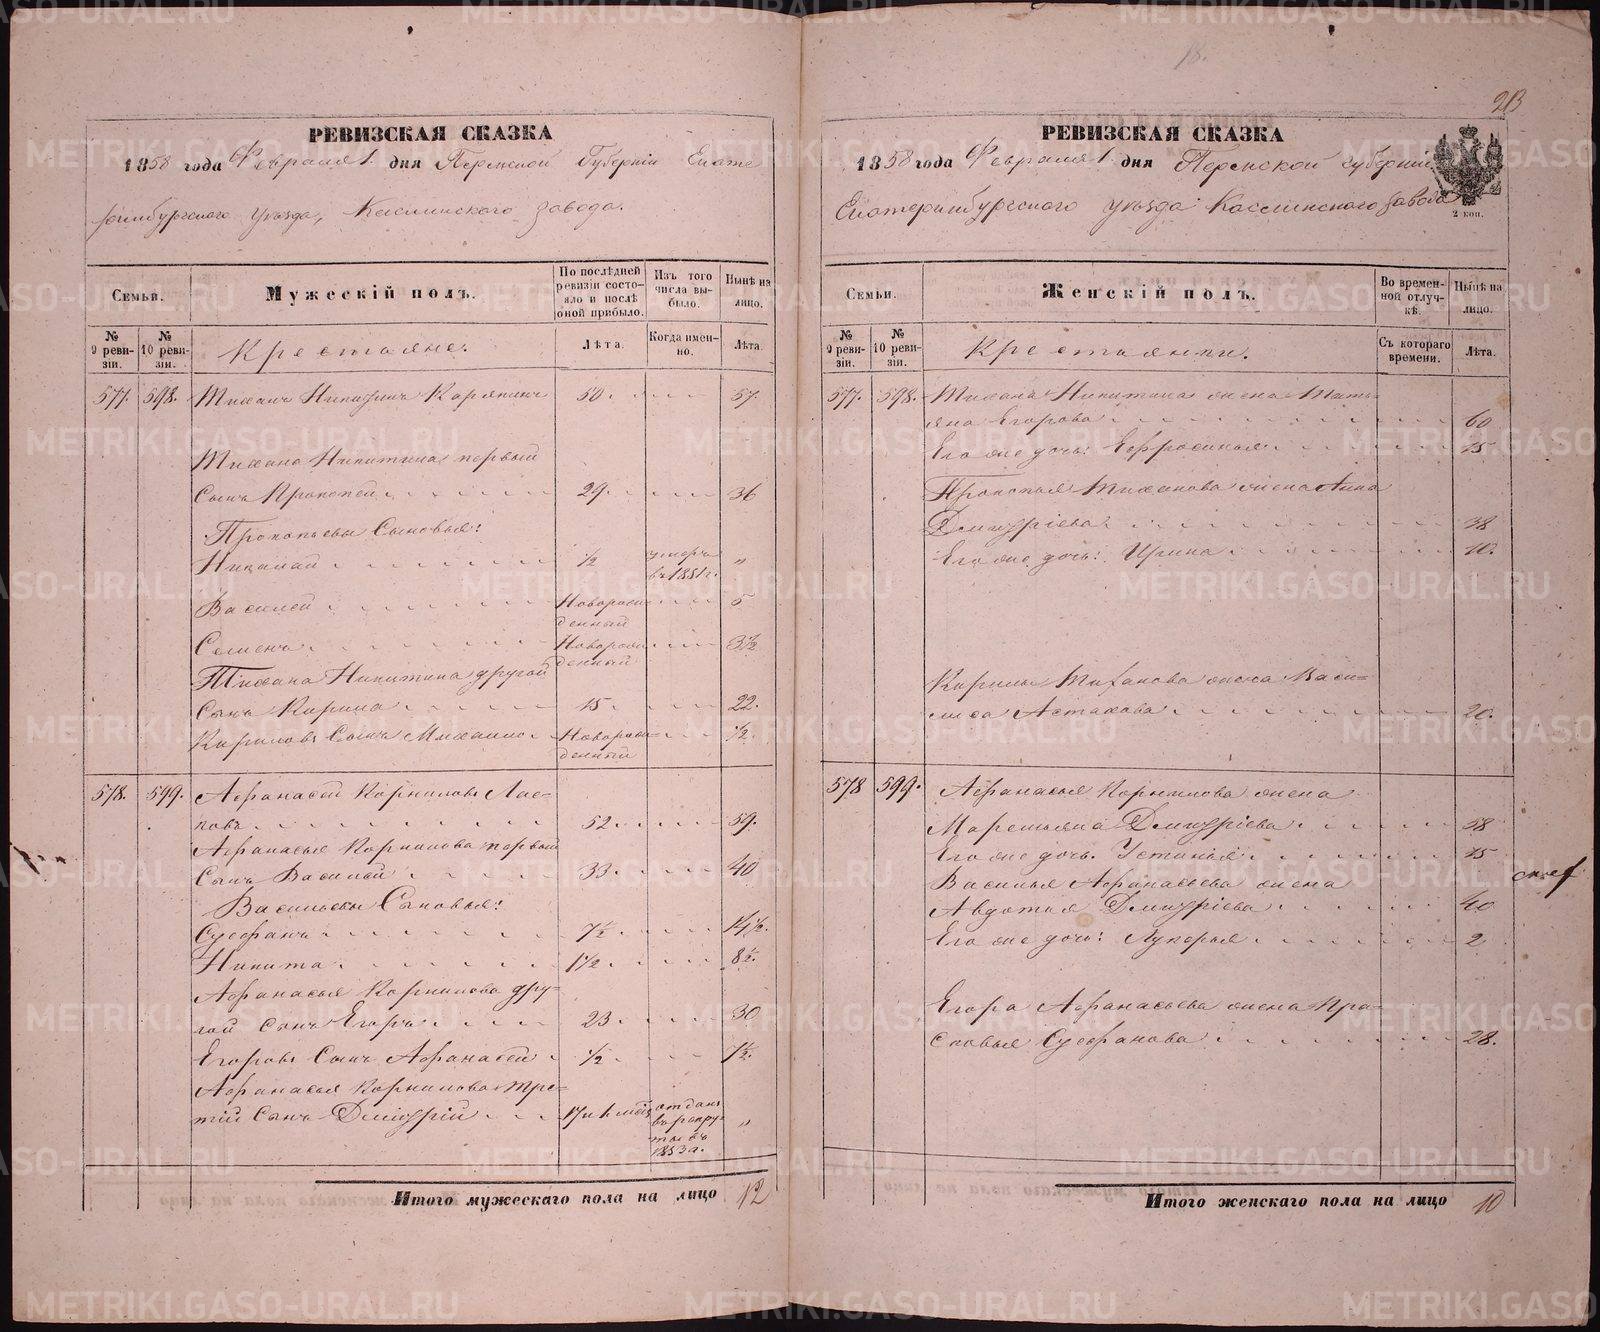 18.
23
РЕВИЗСКАЯ СКАЗКА
1858 года Февраля 1. дня Пермской Губерніи Екате
ринбургскаго уѣзда, Каслинскаго завода.
Семьи.
Мужескій полъ.
По послѣдней ревизіи состояло и послѣ оной прибыло.
Изъ того числа выбыло.
Нынѣ на лицо.
№ 9 ревизіи.
№ 10 ревизіи.
Крестьяне.
Лѣта.
Когда именно.
Лѣта.
577. 598. Тиханъ Никитинъ 50 57.
Тихана Никитина первый
Сынъ Прокопей 29 36
Прокопьевы Сыновья:
Николай 1/2 умеръ въ 1851 г. "
Василей Новорожденный 5
Семенъ Новорожденный 3 1/2
Тихана Никитина другой
Сынъ Кирила 15 22.
Кириловъ Сынъ Михаило Новорожденный 1/2
578. 599. Афанасей Корниловъ Лос=
ковъ 52 59.
Афанасья Корнилова первый
Сынъ Василий 33 40
Васильевы Сыновья:
Стефанъ 7 1/2 14 1/2.
Никита 1 1/2 8 1/2.
Афанасья Корнилова дру=
гой сынъ Егоръ 23 30
Егоровъ Сынъ Афанасей 1/2 7 1/2.
Афанасья Корнилова тре=
тій Сынъ Дмитрій 17 и 1 мѣс отданъ въ рекруты въ 1853 г. "
Итого мужескаго пола на лицо 12
РЕВИЗСКАЯ СКАЗКА
1858 года Февраля 1. дня Пермской губерніи
Екатеринбургскаго уѣзда Каслинскаго завода
2 коп.
Семьи.
Женскій полъ.
Во временной отлучкѣ.
Нынѣ на лицо.
№ 9 ревизіи.
№ 10 ревизіи.
Крестьянки.
Съ котораго времени.
Лѣта.
577. 598. Тихана Никитина жена Тать=
яна Егорова 60
Его же дочь: Ефросинья 15
Прокопья Тиханова жена Анна
Дмитріева 38
Его же дочь: Ирина 10.
Кирилы Тиханова жена Васи=
лиса Астахова 20.
578 599. Афанасья Корнилова жена
Маремьяна Дмитріева 58
Его же дочь. Устинья 15
Василья Афанасьева жена
Авдотья Дмитріева 40
Его же дочь: Лукерья 2
Егора Афанасьева жена Пра=
сковья Стефанова 28.
Итого женскаго пола на лицо 10
METRIKI.GASO-URAL.RU